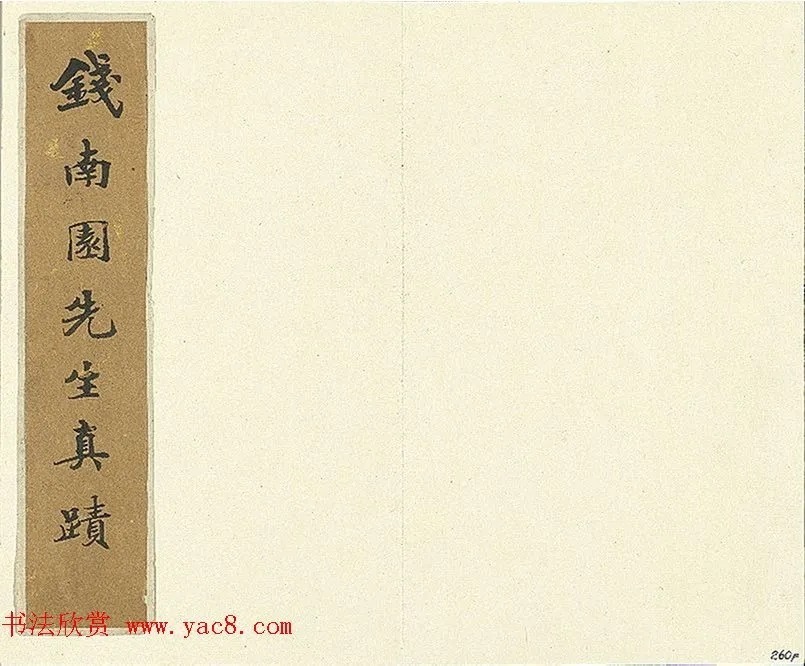 錢南園先生真蹟
书法欣赏 www.yac8.com
260F